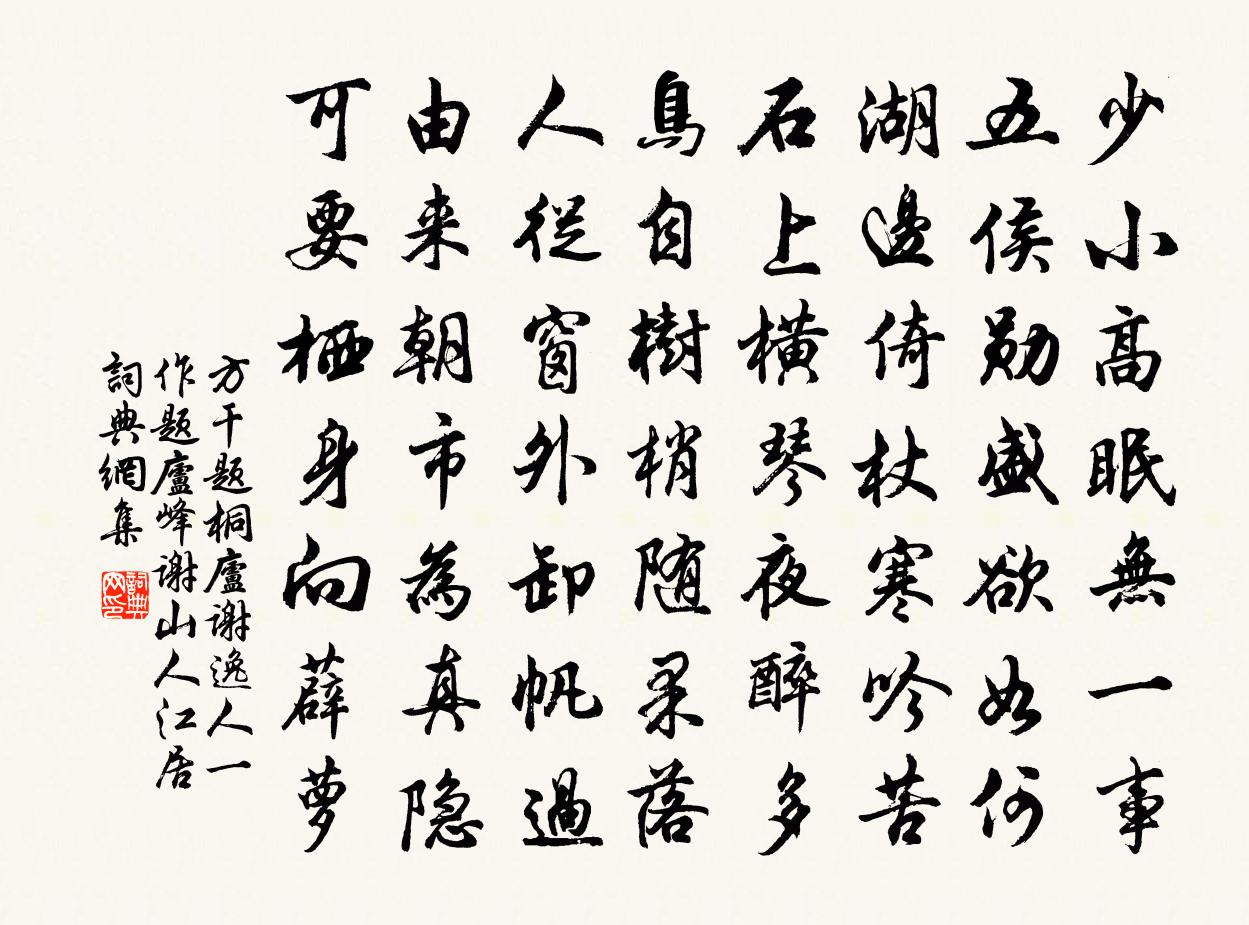 少小高眠無一事
五侯勋盛欲如何
湖邊倚杖寒吟苦
石上橫琴夜醉多
鳥自樹梢随果落
人從窗外卸帆過
由来朝市為真隐
可要栖身向薜萝
方干题桐廬谢逸人一
作题廬峰谢山人江居
詞典網集
詞典网印